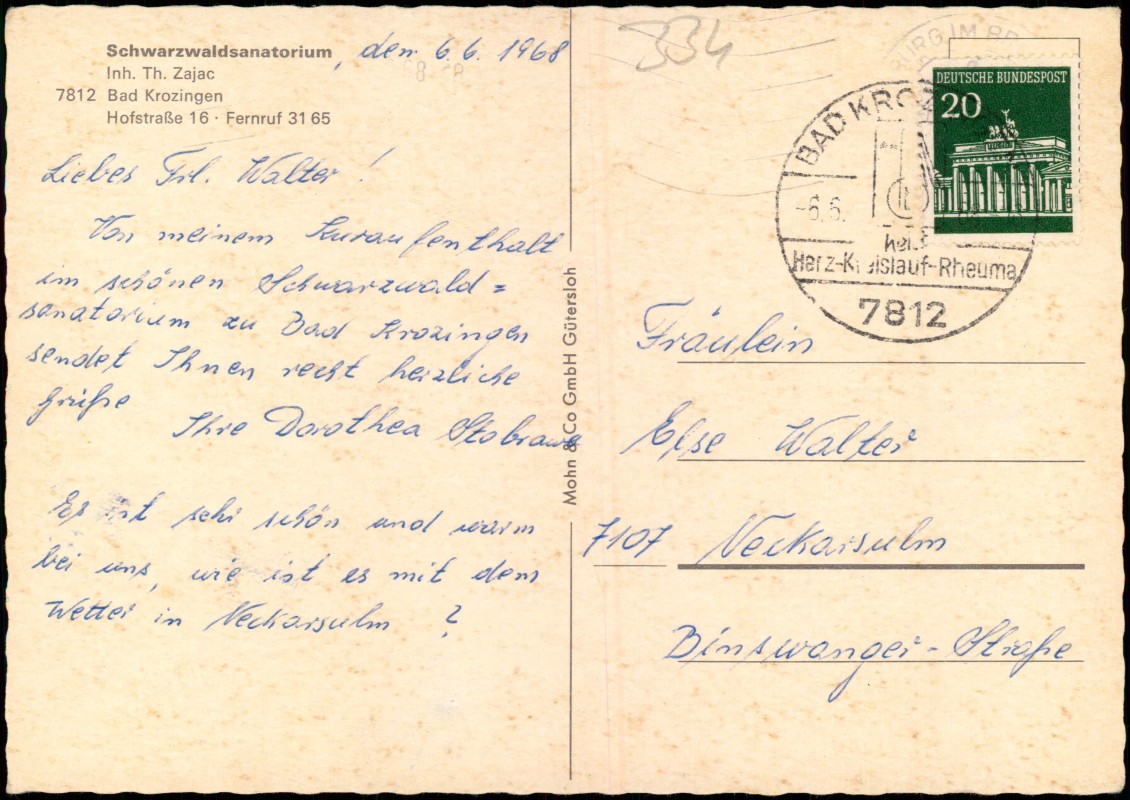 Schwarzwaldsanatorium, den 6.6.1968
Inh. Th. Zajac
7812 Bad Krozingen
Hofstraße 16 · Fernruf 31 65
Liebes Frl. Walter!
Von meinem Kuraufenthalt
im schönen Schwarzwald=
sanatorium zu Bad Krozingen
sendet Ihnen recht herzliche
Grüße
Ihre Dorothea Stobrawe
Es ist sehr schön und warm
bei uns, wie ist es mit dem
Wetter in Neckarsulm?
Mohn & Co GmbH Gütersloh
334
DEUTSCHE BUNDESPOST
20
BAD KROZ
-6.6.
heilt
Herz-Kreislauf-Rheuma
7812
Fräulein
Else Walter
7107 Neckarsulm
Binswanger-Straße